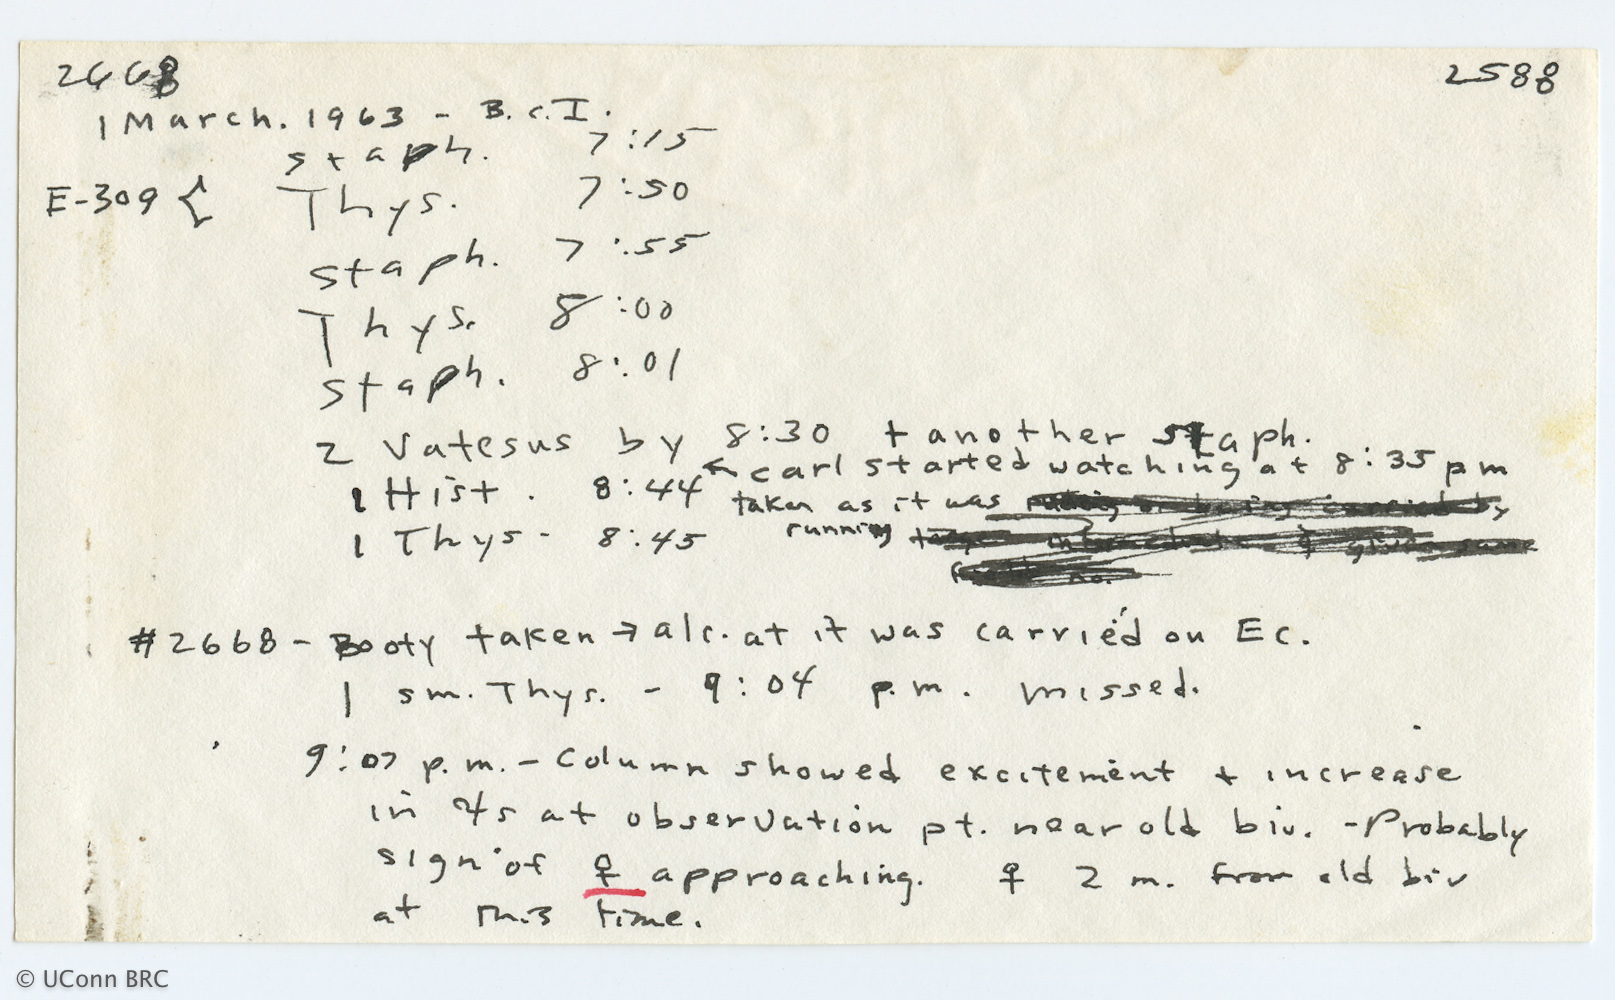 2668 2588
1 March. 1963 - B.C.I.
staph. 7:15
E-309 { Thys. 7:50
staph. 7:55
Thys. 8:00
staph. 8:01
2 Vatesus by 8:30 + another staph.
← carl started watching at 8:35 pm
1 Hist. 8:44 taken as it was
running
1 Thys - 8:45
#2668 - Booty taken → alc. at it was carried on Ec.
1 sm. Thys. - 9:04 p.m. missed.
9:07 p.m. - Column showed excitement + increase
in at observation pt. near old biv. - Probably
sign of ♀ approaching. ♀ 2 m. from old biv
at this time.
© UConn BRC